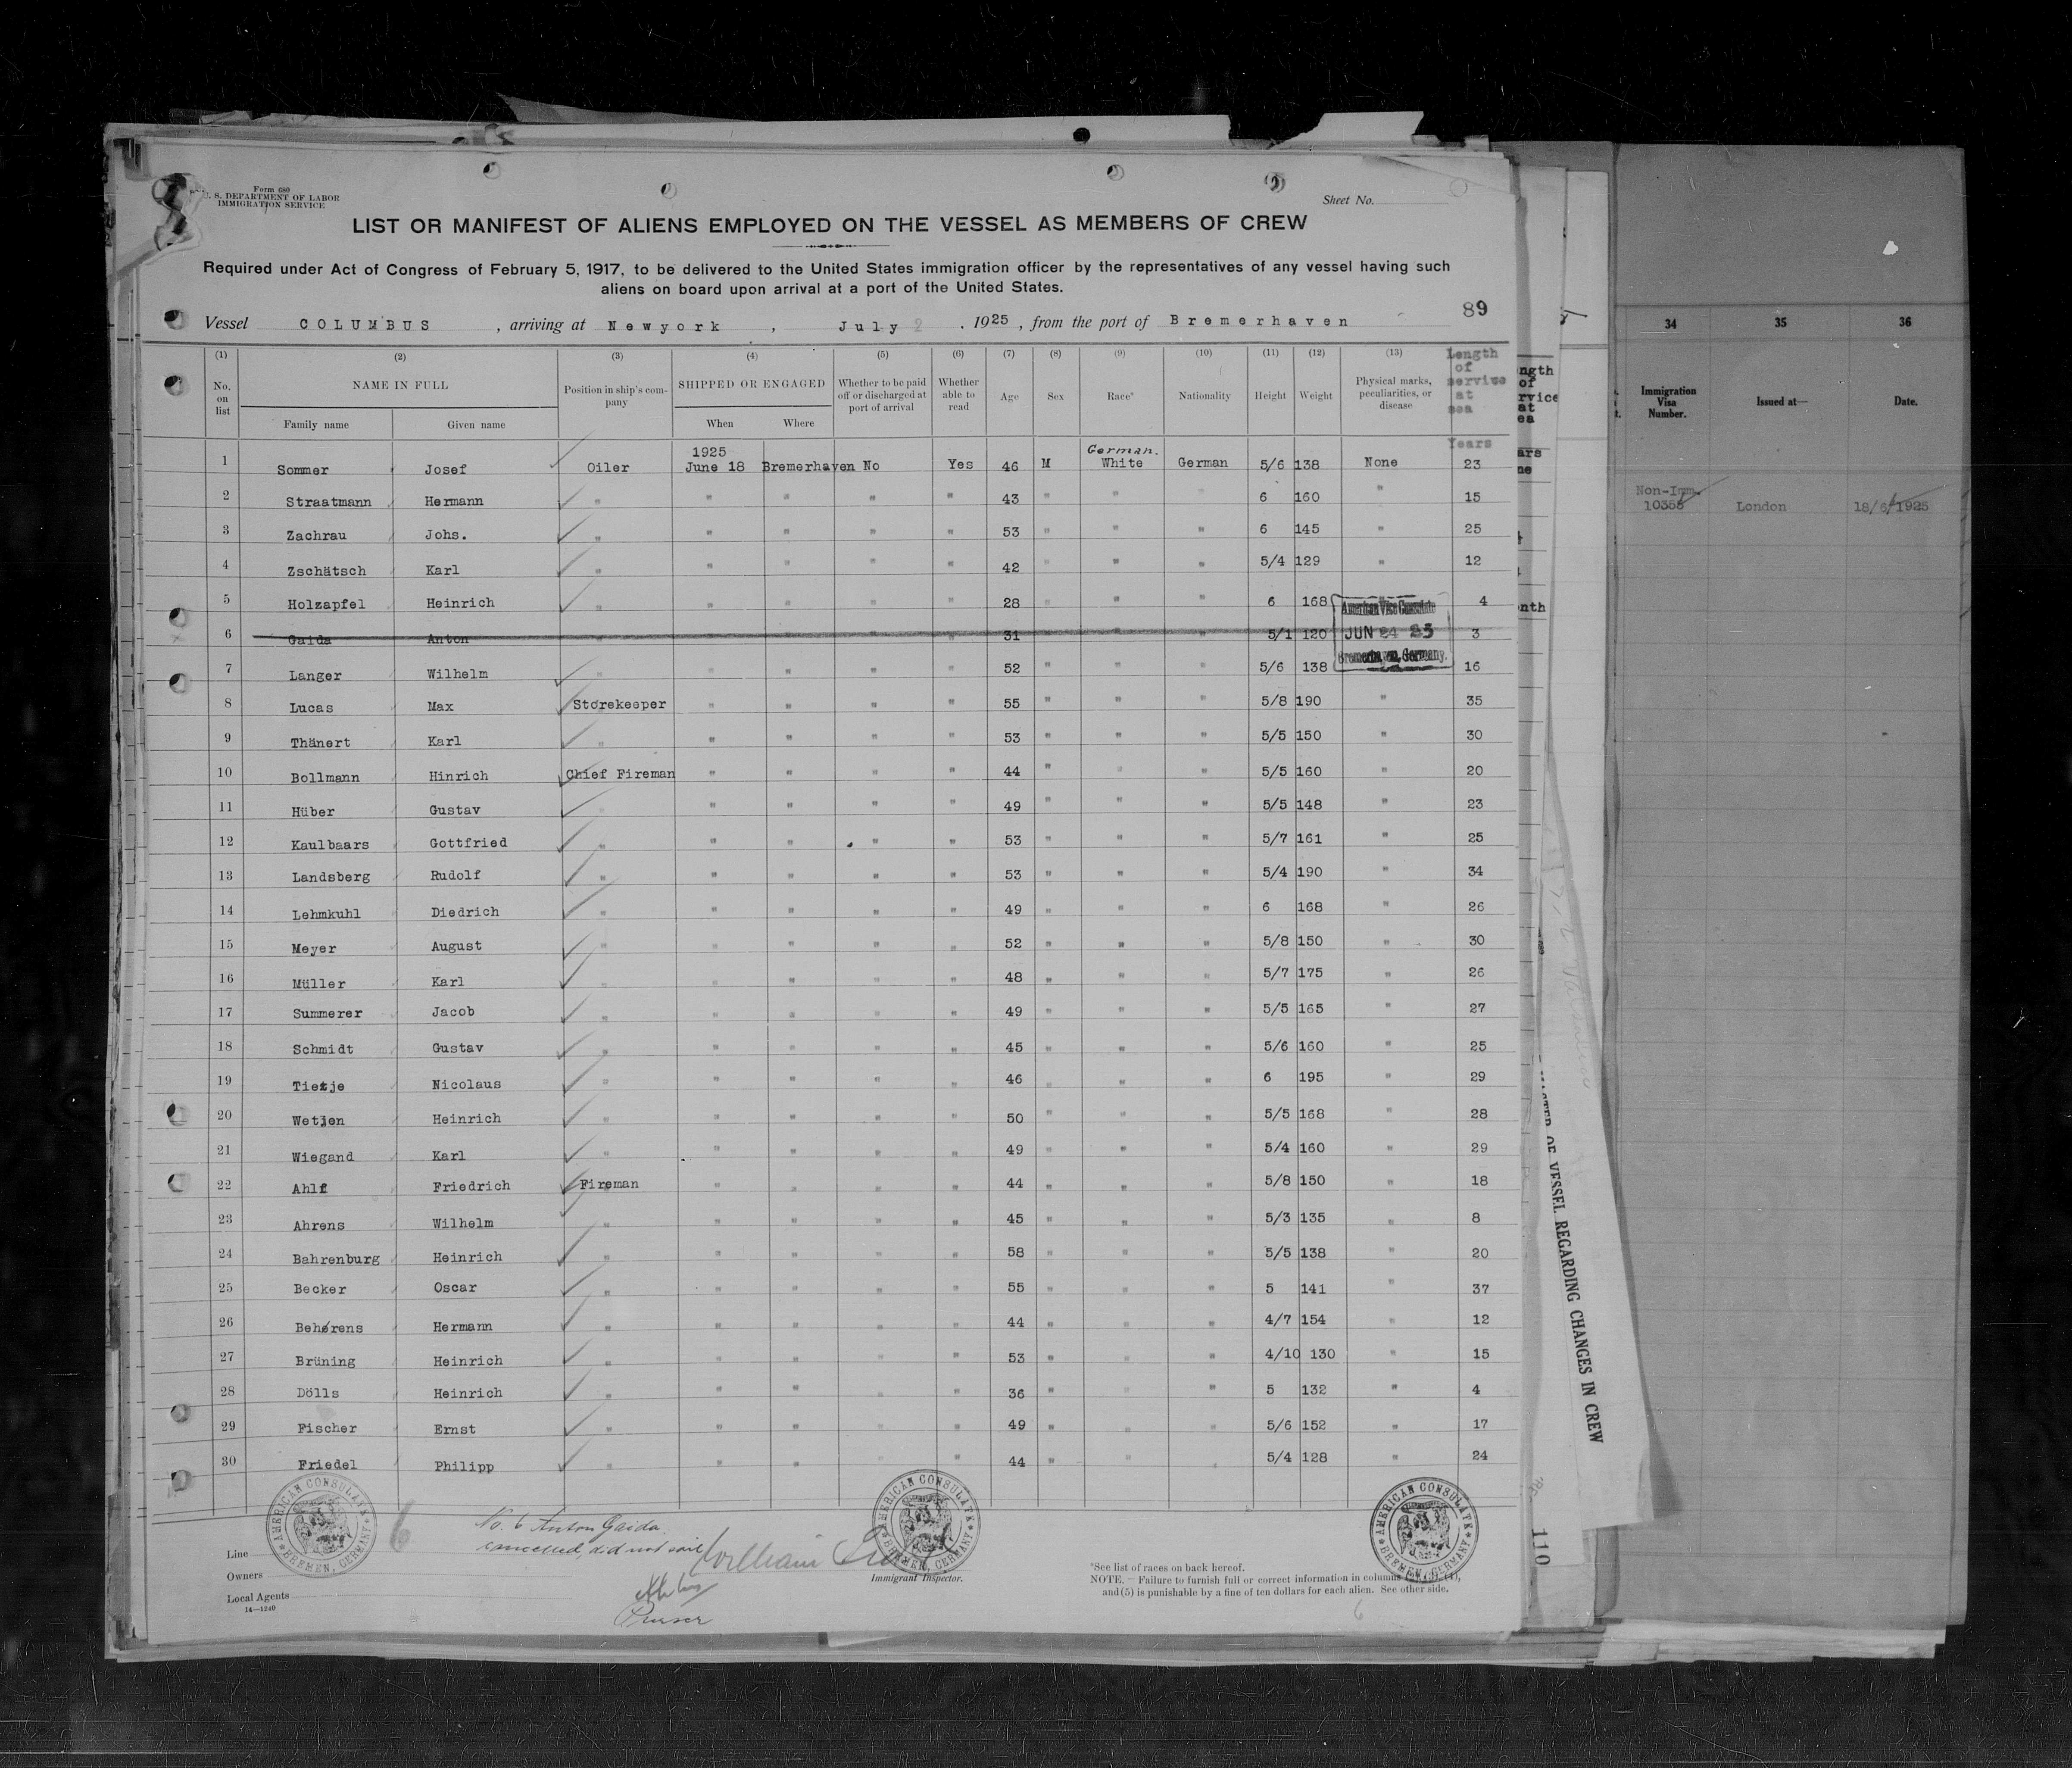 Form 680
U. S. DEPARTMENT OF LABOR
IMMIGRATION SERVICE
Sheet No.
LIST OR MANIFEST OF ALIENS EMPLOYED ON THE VESSEL AS MEMBERS OF CREW
Required under Act of Congress of February 5, 1917, to be delivered to the United States immigration officer by the representatives of any vessel having such
aliens on board upon arrival at a port of the United States.
89
Vessel COLUMBUS, arriving at Newyork, July 2, 1925, from the port of Bremerhaven
(1) (2) (3) (4) (5) (6) (7) (8) (9) (10) (11) (12) (13)
No. on list NAME IN FULL Family name Given name Position in ship's company SHIPPED OR ENGAGED When Where Whether to be paid off or discharged at port of arrival Whether able to read Age Sex Race* Nationality Height Weight Physical marks, peculiarities, or disease Length of service at sea
Years
1 Sommer Josef Oiler 1925 June 18 Bremerhaven No Yes 46 M German. White German 5/6 138 None 23
2 Straatmann Hermann " " " " " 43 " " " 6 160 " 15
3 Zachrau Johs. " " " " " 53 " " " 6 145 " 25
4 Zschätsch Karl " " " " " 42 " " " 5/4 129 " 12
5 Holzapfel Heinrich " " " " " 28 " " " 6 168 4
6 Gaida Anton " " " " " 31 " " " 5/1 120 3
American Vice Consulate
JUN 24 25
Bremerhaven, Germany.
7 Langer Wilhelm " " " " " 52 " " " 5/6 138 16
8 Lucas Max Storekeeper " " " " 55 " " " 5/8 190 " 35
9 Thänert Karl " " " " " 53 " " " 5/5 150 " 30
10 Bollmann Hinrich Chief Fireman " " " " 44 " " " 5/5 160 " 20
11 Hüber Gustav " " " " " 49 " " " 5/5 148 " 23
12 Kaulbaars Gottfried " " " " " 53 " " " 5/7 161 " 25
13 Landsberg Rudolf " " " " " 53 " " " 5/4 190 " 34
14 Lehmkuhl Diedrich " " " " " 49 " " " 6 168 " 26
15 Meyer August " " " " " 52 " " " 5/8 150 " 30
16 Müller Karl " " " " " 48 " " " 5/7 175 " 26
17 Summerer Jacob " " " " " 49 " " " 5/5 165 " 27
18 Schmidt Gustav " " " " " 45 " " " 5/6 160 " 25
19 Tietje Nicolaus " " " " " 46 " " " 6 195 " 29
20 Wetjen Heinrich " " " " " 50 " " " 5/5 168 " 28
21 Wiegand Karl " " " " " 49 " " " 5/4 160 " 29
22 Ahlf Friedrich Fireman " " " " 44 " " " 5/8 150 " 18
23 Ahrens Wilhelm " " " " " 45 " " " 5/3 135 " 8
24 Bahrenburg Heinrich " " " " " 58 " " " 5/5 138 " 20
25 Becker Oscar " " " " " 55 " " " 5 141 " 37
26 Behrens Hermann " " " " " 44 " " " 4/7 154 " 12
27 Brüning Heinrich " " " " " 53 " " " 4/10 130 " 15
28 Dölls Heinrich " " " " " 36 " " " 5 132 " 4
29 Fischer Ernst " " " " " 49 " " " 5/6 152 " 17
30 Friedel Philipp " " " " " 44 " " " 5/4 128 " 24
AMERICAN CONSULATE BREMEN, GERMANY
AMERICAN CONSULATE BREMEN, GERMANY
AMERICAN CONSULATE BREMEN, GERMANY
6
No. 6 Anton Gaida
cancelled, did not sail
William
Purser
Line
Owners
Local Agents
14—1240
Immigrant Inspector.
*See list of races on back hereof.
NOTE.—Failure to furnish full or correct information in columns
and (5) is punishable by a fine of ten dollars for each alien. See other side.
6
34 35 36
Immigration Visa Number. Issued at— Date.
Non-Imm. 10358 London 18/6/1925
OF VESSEL REGARDING CHANGES IN CREW
110